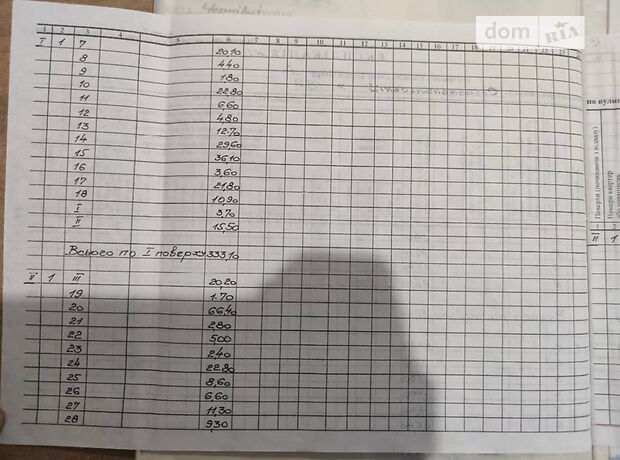 Чернівці
dom RIA
1 2 3 4 5 6 7 8 9 10 11 12 13 14 15 16 17 18 19 20 21 22 23
I 1 7 20,10
8 4,40
9 1,80
10 22,80
11 6,60
12 4,80
13 12.70
14 29,60
15 36,10
16 3,60
17 21,80
18 10,90
I 3,70
II 15,50
Всього по I поверху 333,10
II 1 III 20,20
19 1.70
20 66,40
21 2,80
22 5,00
23 2,40
24 22,30
25 8,60
26 6,60
27 11,30
28 9,30
по вули
Поверхи (починаючи з підвалу)
Номери квартир
1 2
II 1